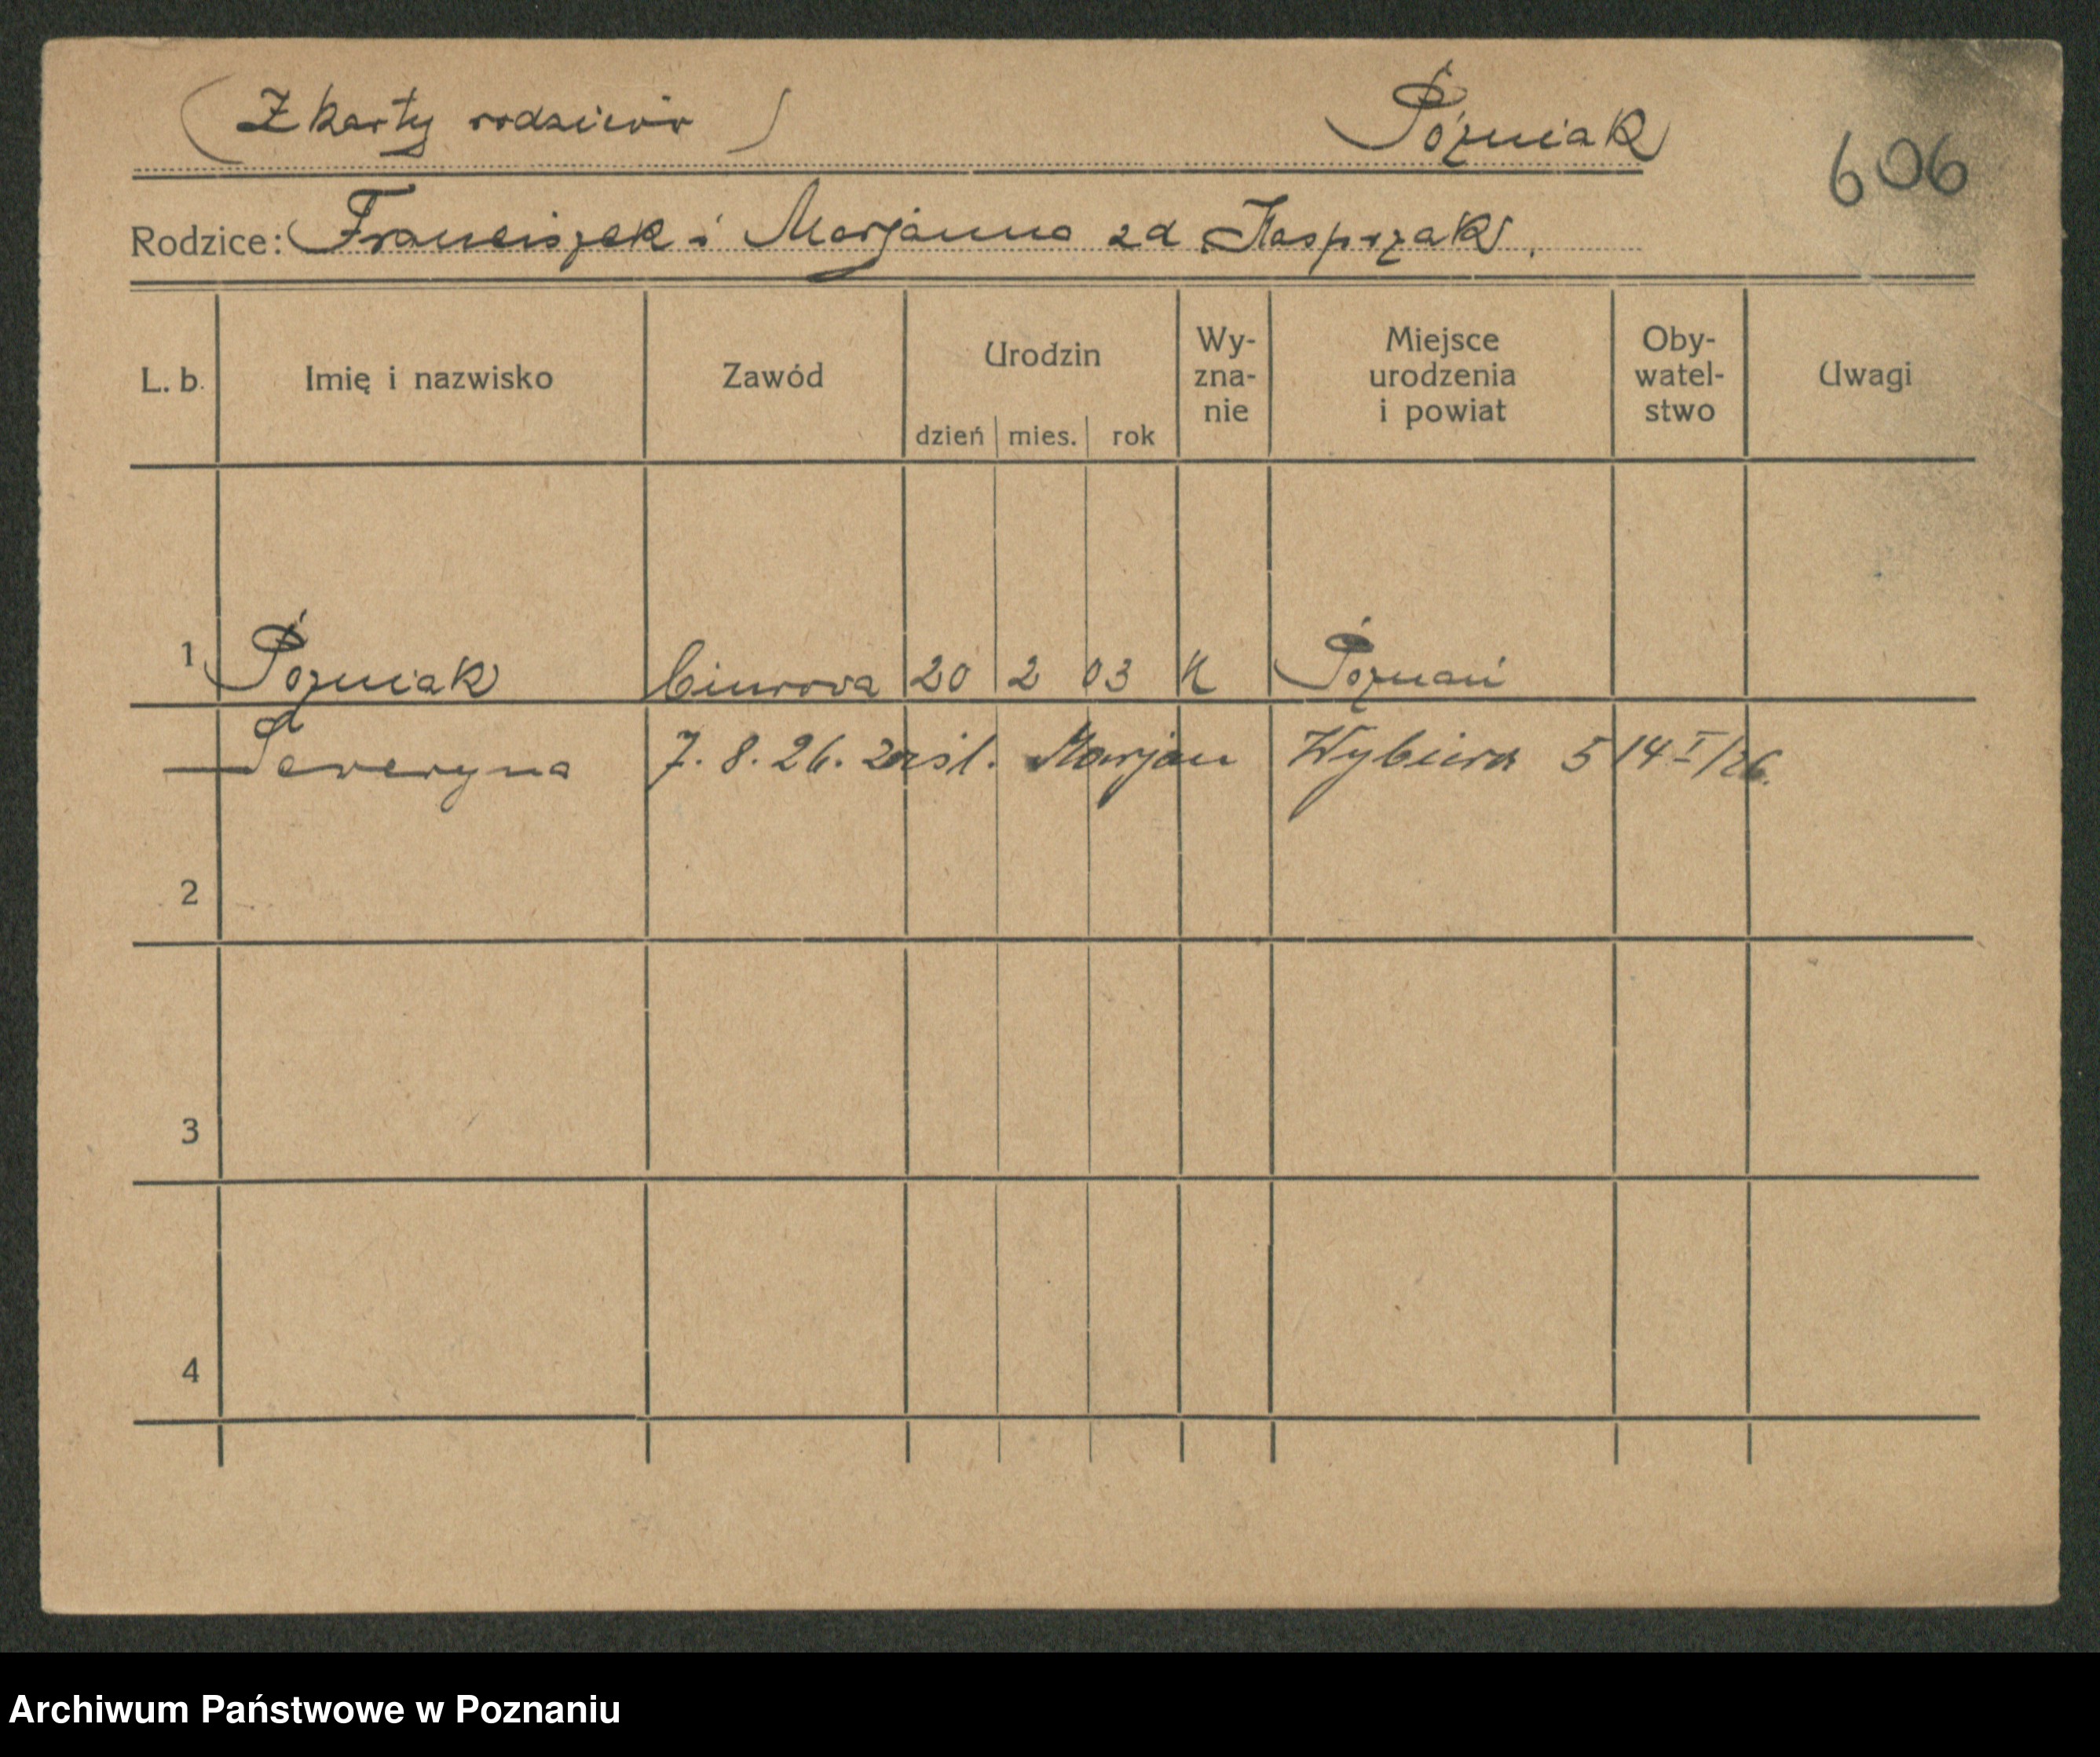 (Z karty rodziców) Poźniak
606
Rodzice: Franciszek i Marjanna zd Kasprzak.
L. b. Imię i nazwisko Zawód Urodzin dzień mies. rok Wy-zna-nie Miejsce urodzenia i powiat Oby-watel-stwo Uwagi
1 Poźniak biurowa 20 2 03 K Poznań
Seweryna 7. 8. 26. zaśl. Marjan 5 14 I/26.
2
3
4
Archiwum Państwowe w Poznaniu